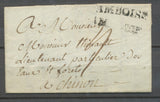 AMBOISE
A Monsieur
Monsieur
Lieutenant particulier des
Eaux et forets
a Chinon